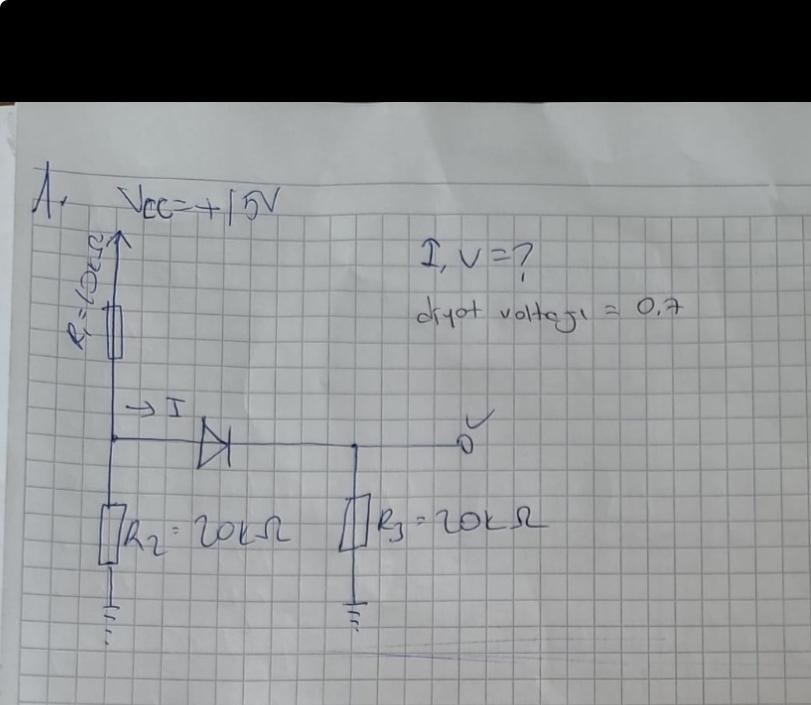 A. VCC=+15V
R₁=10kΩ
I, V=?
diyot voltajı = 0.7
→ I
V
R₂=20kΩ
R₃=20kΩ